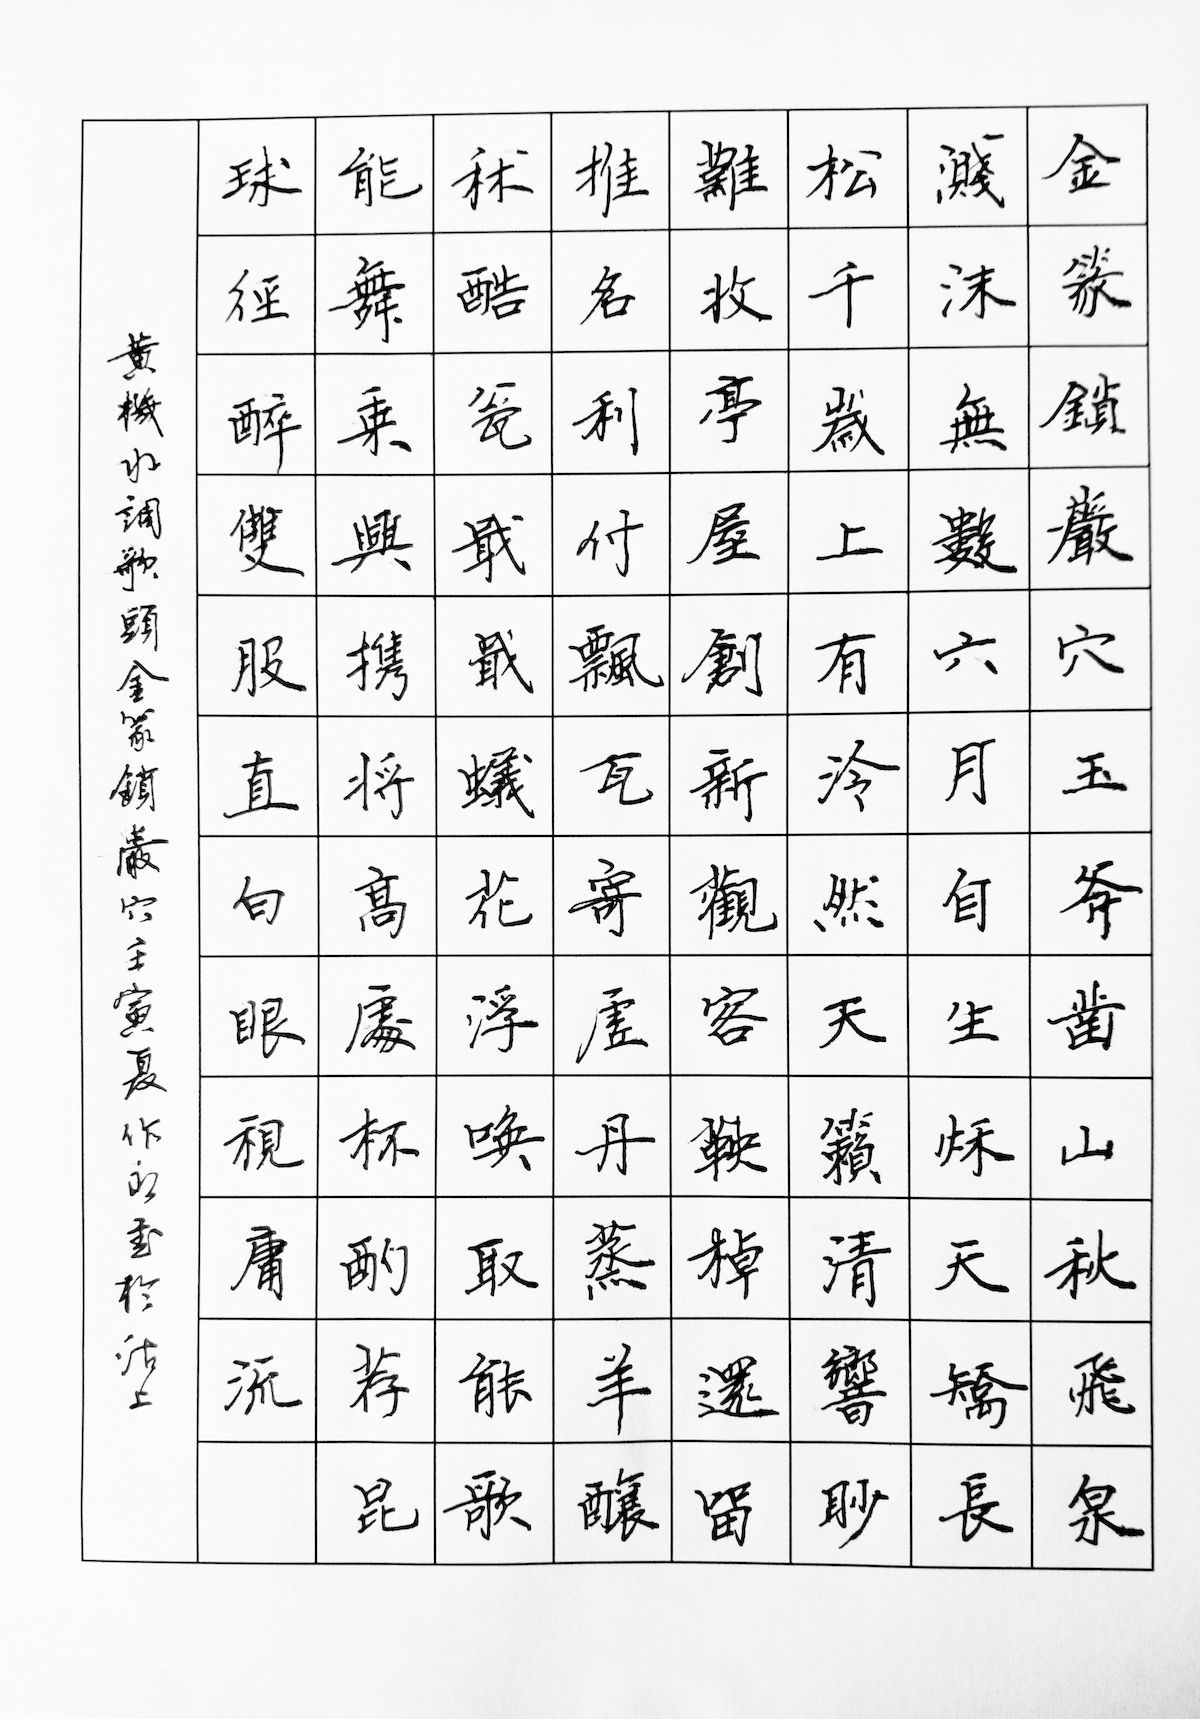 金篆鎖巖穴玉斧鑿山秋飛泉
濺沫無數六月自生秌天矯長
松千歲上有泠然天籟清響眇
難收亭屋創新觀客鞅棹還留
推名利付飄瓦寄虛舟蒸羊釀
秫酷瓮戢戢蟻花浮喚取能歌
能舞乘興携將高處杯酌荐昆
球徑醉雙服直白眼視庸流
黃機水調歌頭金篆鎖巖穴壬寅夏作永書於沽上